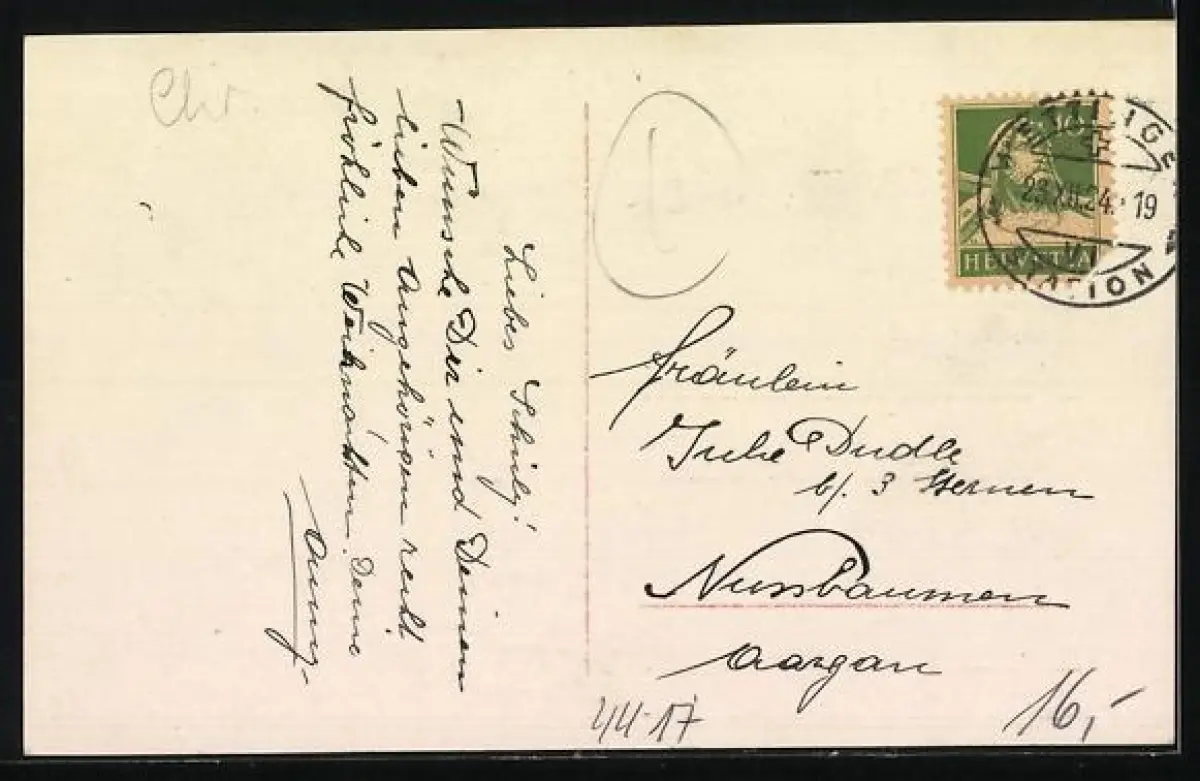 Chr.
Liebes Schuly!
Wünsche Dir und Deinen
lieben Angehörigen recht
fröhliche Weihnachten. Deine
Anny
10
HELVETIA
WETTINGEN
23.XII.24. 19
VI
STATION
Fräulein
Dudle
b/. 3 Sternen
Nussbaumen
Aargau
44-17
16,-